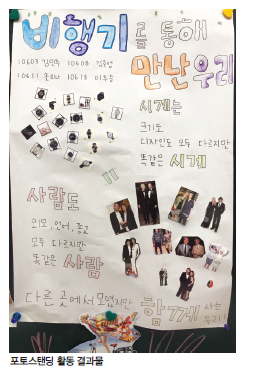 비행기를 통해
만난우리
10603 김민주 10608
10611 10618
시계는
크기도
디자인도 모두 다르지만
똑같은 시계
사람도
외모, 언어, 종교
모두 다르지만
똑같은 사람
다른 곳에서 모였지만
함께 사는
우리!
포토스탠딩 활동 결과물